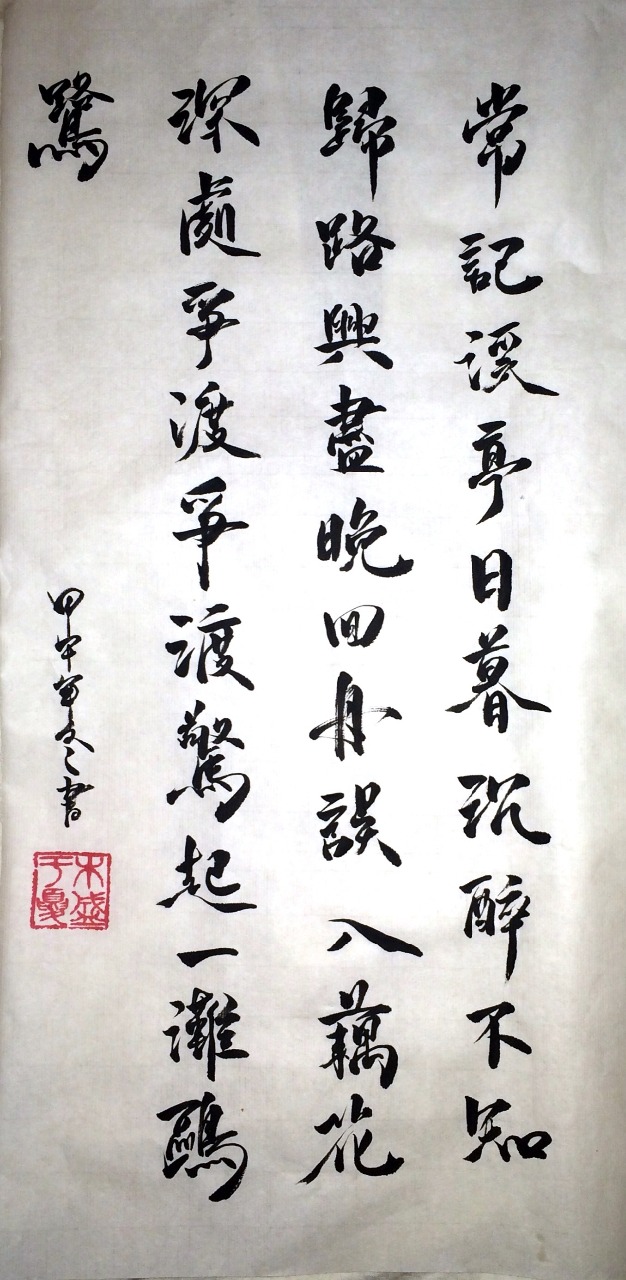 常記溪亭日暮沉醉不知
歸路興盡晚回舟誤入藕花
深處爭渡爭渡驚起一灘鷗
鷺
甲午年冬書